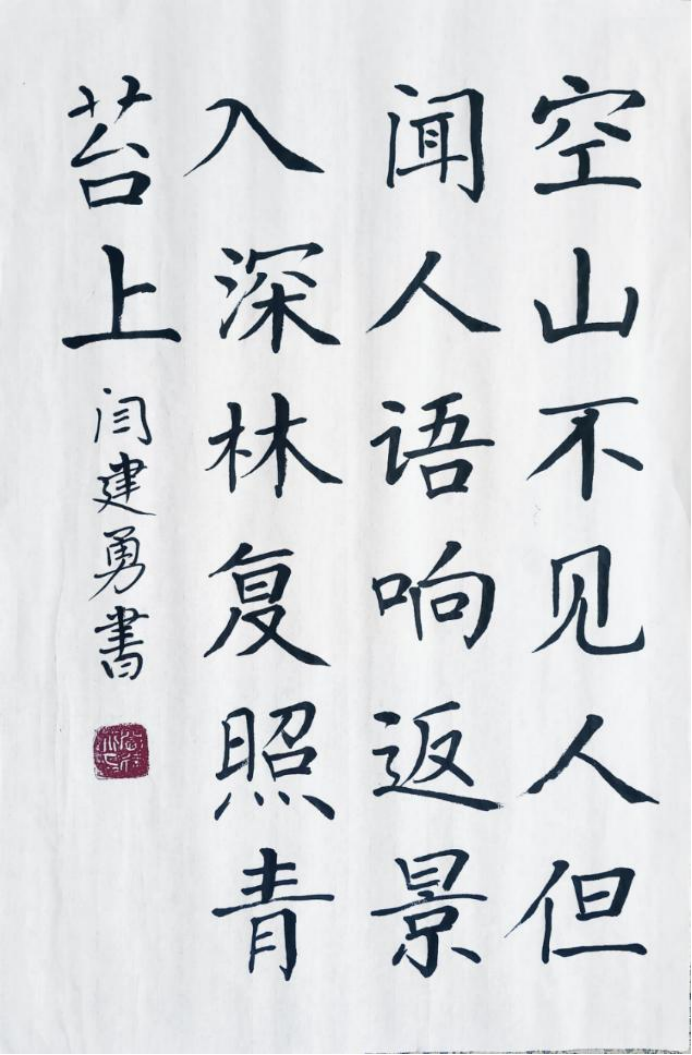 空山不见人但
闻人语响返景
入深林复照青
苔上
闫建勇書